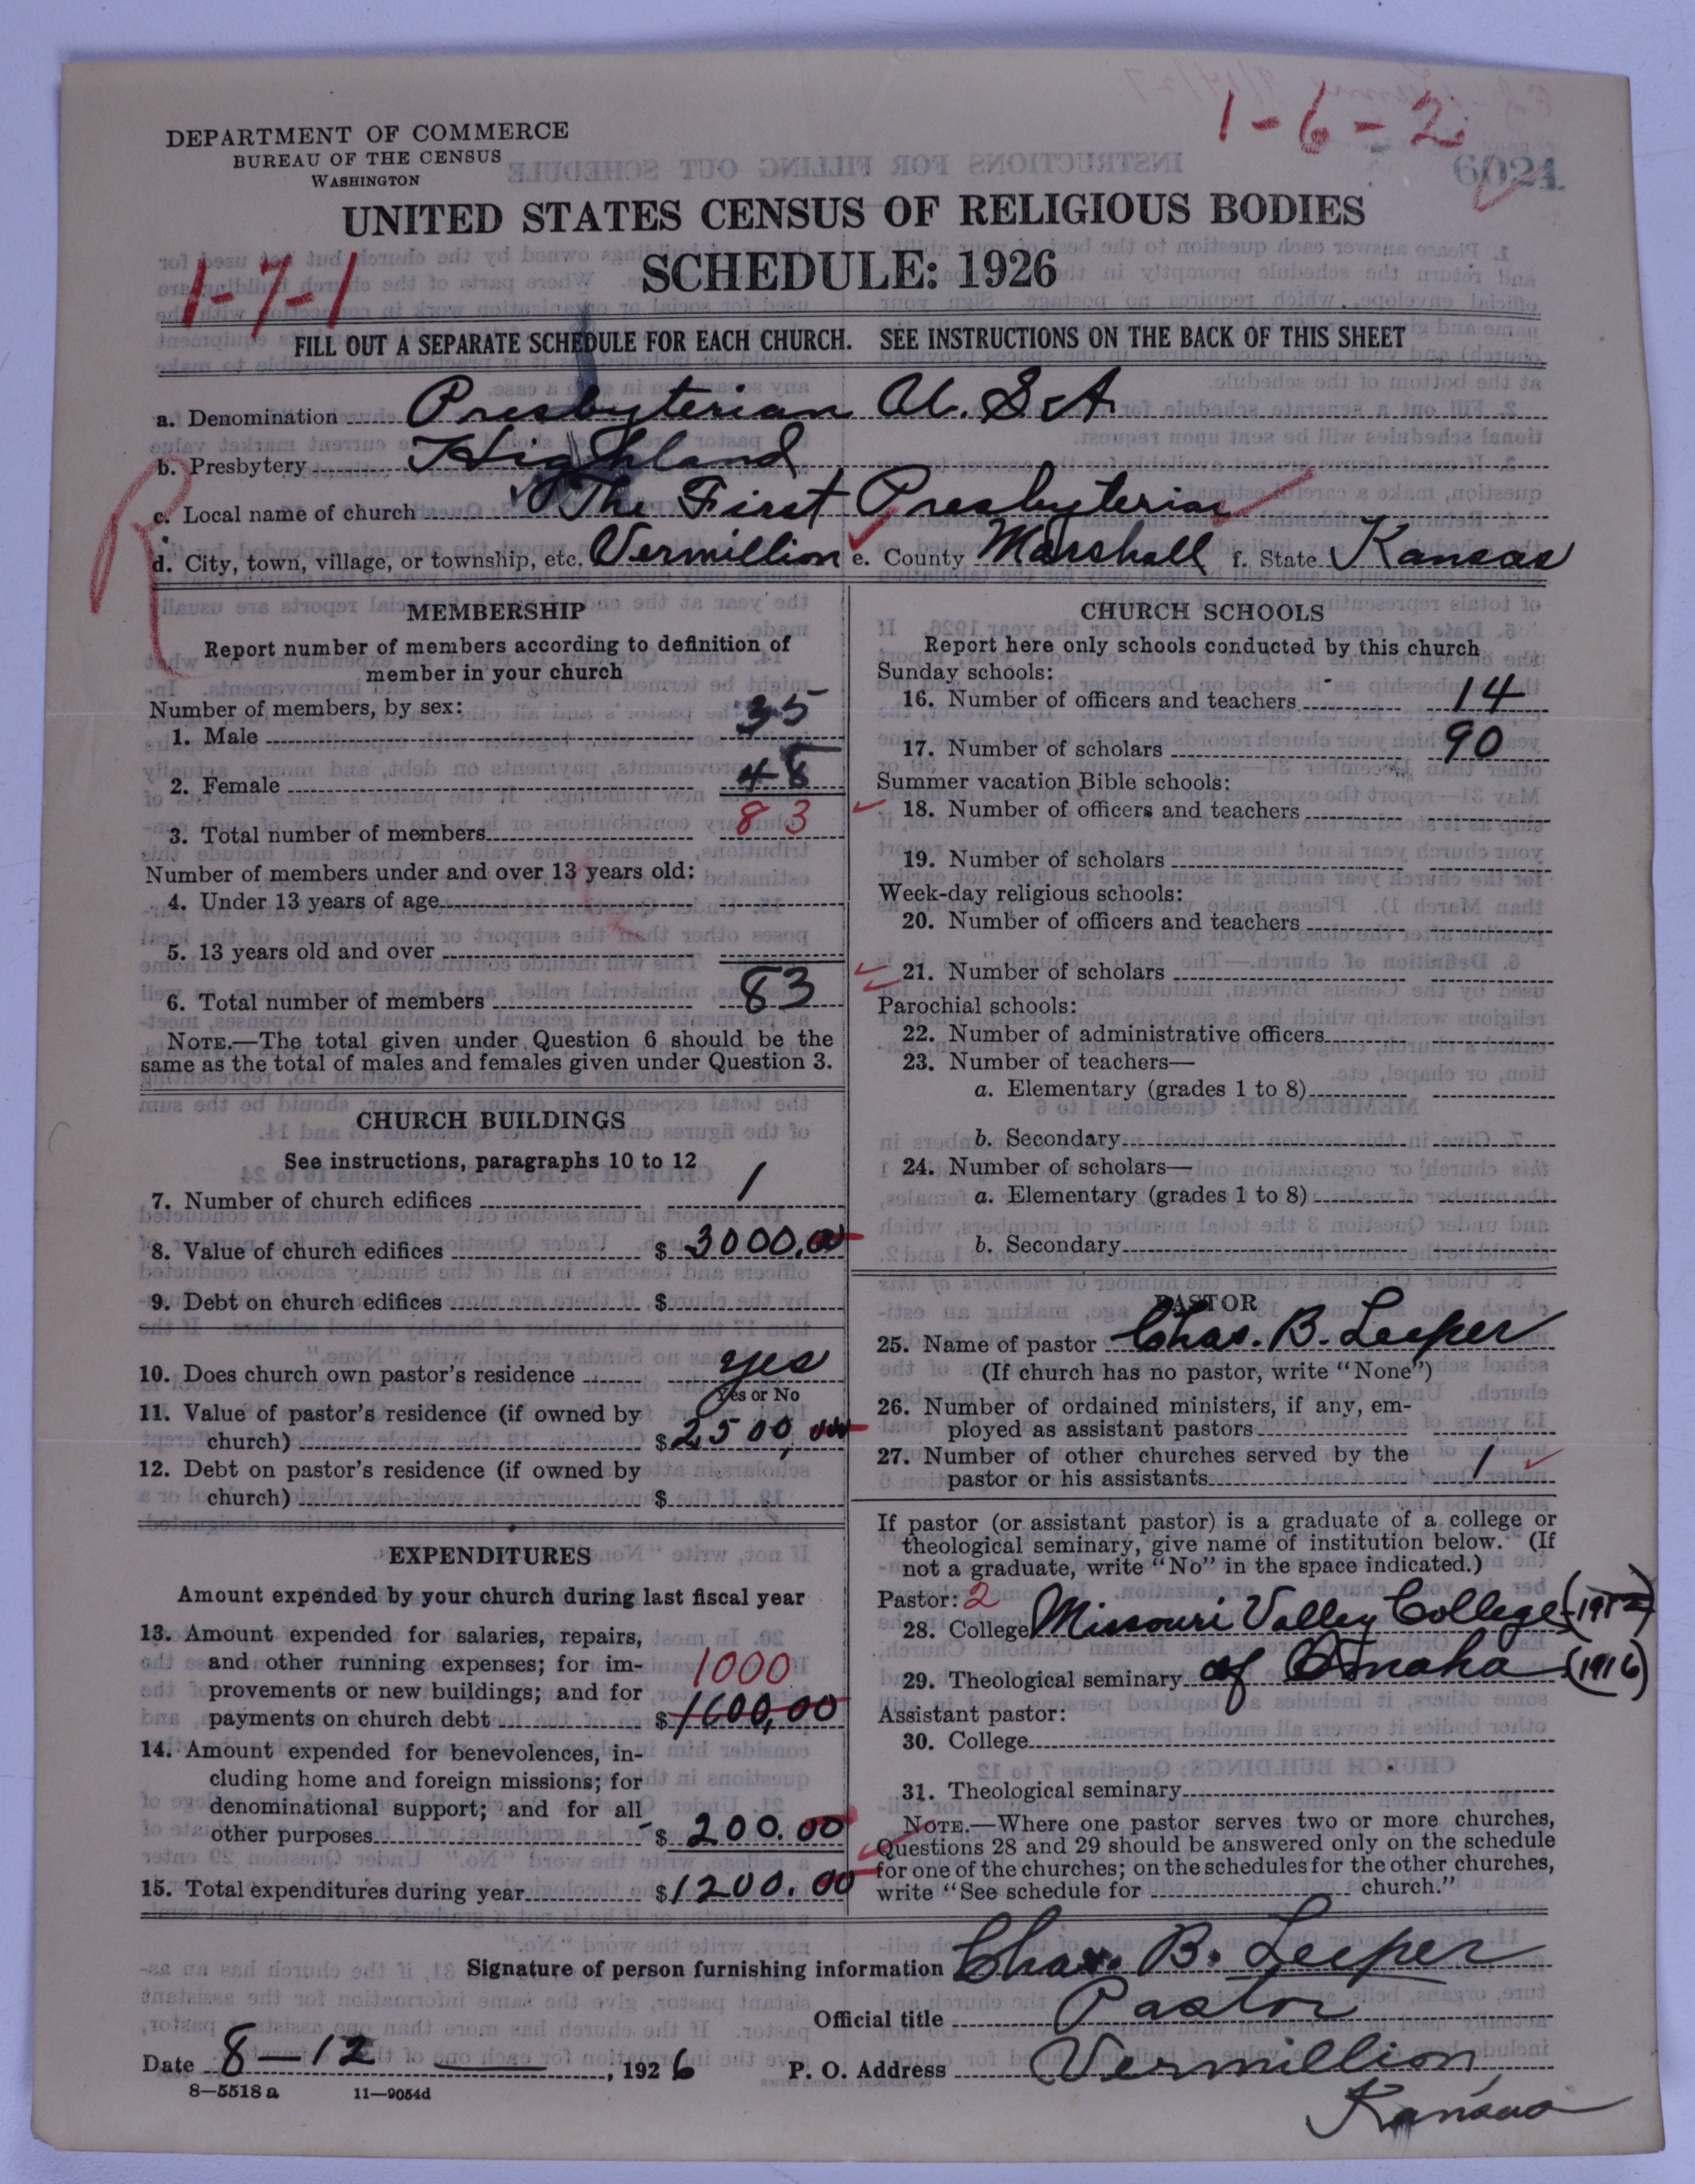 1-6-2
DEPARTMENT OF COMMERCE
BUREAU OF THE CENSUS
WASHINGTON
6021
UNITED STATES CENSUS OF RELIGIOUS BODIES
SCHEDULE: 1926
1-7-1
FILL OUT A SEPARATE SCHEDULE FOR EACH CHURCH. SEE INSTRUCTIONS ON THE BACK OF THIS SHEET
a. Denomination Presbyterian U.S.A.
b. Presbytery Highland
c. Local name of church The First Presbyterian
d. City, town, village, or township, etc. Vermillion e. County Marshall f. State Kansas
R
MEMBERSHIP
Report number of members according to definition of
member in your church
Number of members, by sex:
1. Male 35
2. Female 48
3. Total number of members 83
Number of members under and over 13 years old:
4. Under 13 years of age
5. 13 years old and over
6. Total number of members 83
NOTE.—The total given under Question 6 should be the
same as the total of males and females given under Question 3.
CHURCH BUILDINGS
See instructions, paragraphs 10 to 12
7. Number of church edifices 1
8. Value of church edifices $ 3000.00
9. Debt on church edifices $
10. Does church own pastor's residence yes
Yes or No
11. Value of pastor's residence (if owned by
church) $ 2500.00
12. Debt on pastor's residence (if owned by
church) $
EXPENDITURES
Amount expended by your church during last fiscal year
13. Amount expended for salaries, repairs,
and other running expenses; for im-
provements or new buildings; and for 1000
payments on church debt $ 1600,00
14. Amount expended for benevolences, in-
cluding home and foreign missions; for
denominational support; and for all
other purposes $ 200.00
15. Total expenditures during year $ 1200.00
CHURCH SCHOOLS
Report here only schools conducted by this church
Sunday schools:
16. Number of officers and teachers 14
17. Number of scholars 90
Summer vacation Bible schools:
18. Number of officers and teachers
19. Number of scholars
Week-day religious schools:
20. Number of officers and teachers
21. Number of scholars
Parochial schools:
22. Number of administrative officers
23. Number of teachers—
a. Elementary (grades 1 to 8)
b. Secondary
24. Number of scholars—
a. Elementary (grades 1 to 8)
b. Secondary
PASTOR
25. Name of pastor Chas. B. Leeper
(If church has no pastor, write "None")
26. Number of ordained ministers, if any, em-
ployed as assistant pastors
27. Number of other churches served by the
pastor or his assistants 1
If pastor (or assistant pastor) is a graduate of a college or
theological seminary, give name of institution below. (If
not a graduate, write "No" in the space indicated.)
Pastor: 2
28. College Missouri Valley College
29. Theological seminary of Omaha (1916)
Assistant pastor:
30. College
31. Theological seminary
NOTE.—Where one pastor serves two or more churches,
Questions 28 and 29 should be answered only on the schedule
for one of the churches; on the schedules for the other churches,
write "See schedule for church."
Signature of person furnishing information Chas. B. Leeper
Official title Pastor
Date 8-12, 1926 P. O. Address Vermillion,
Kansas
8-5518 a 11-9054d